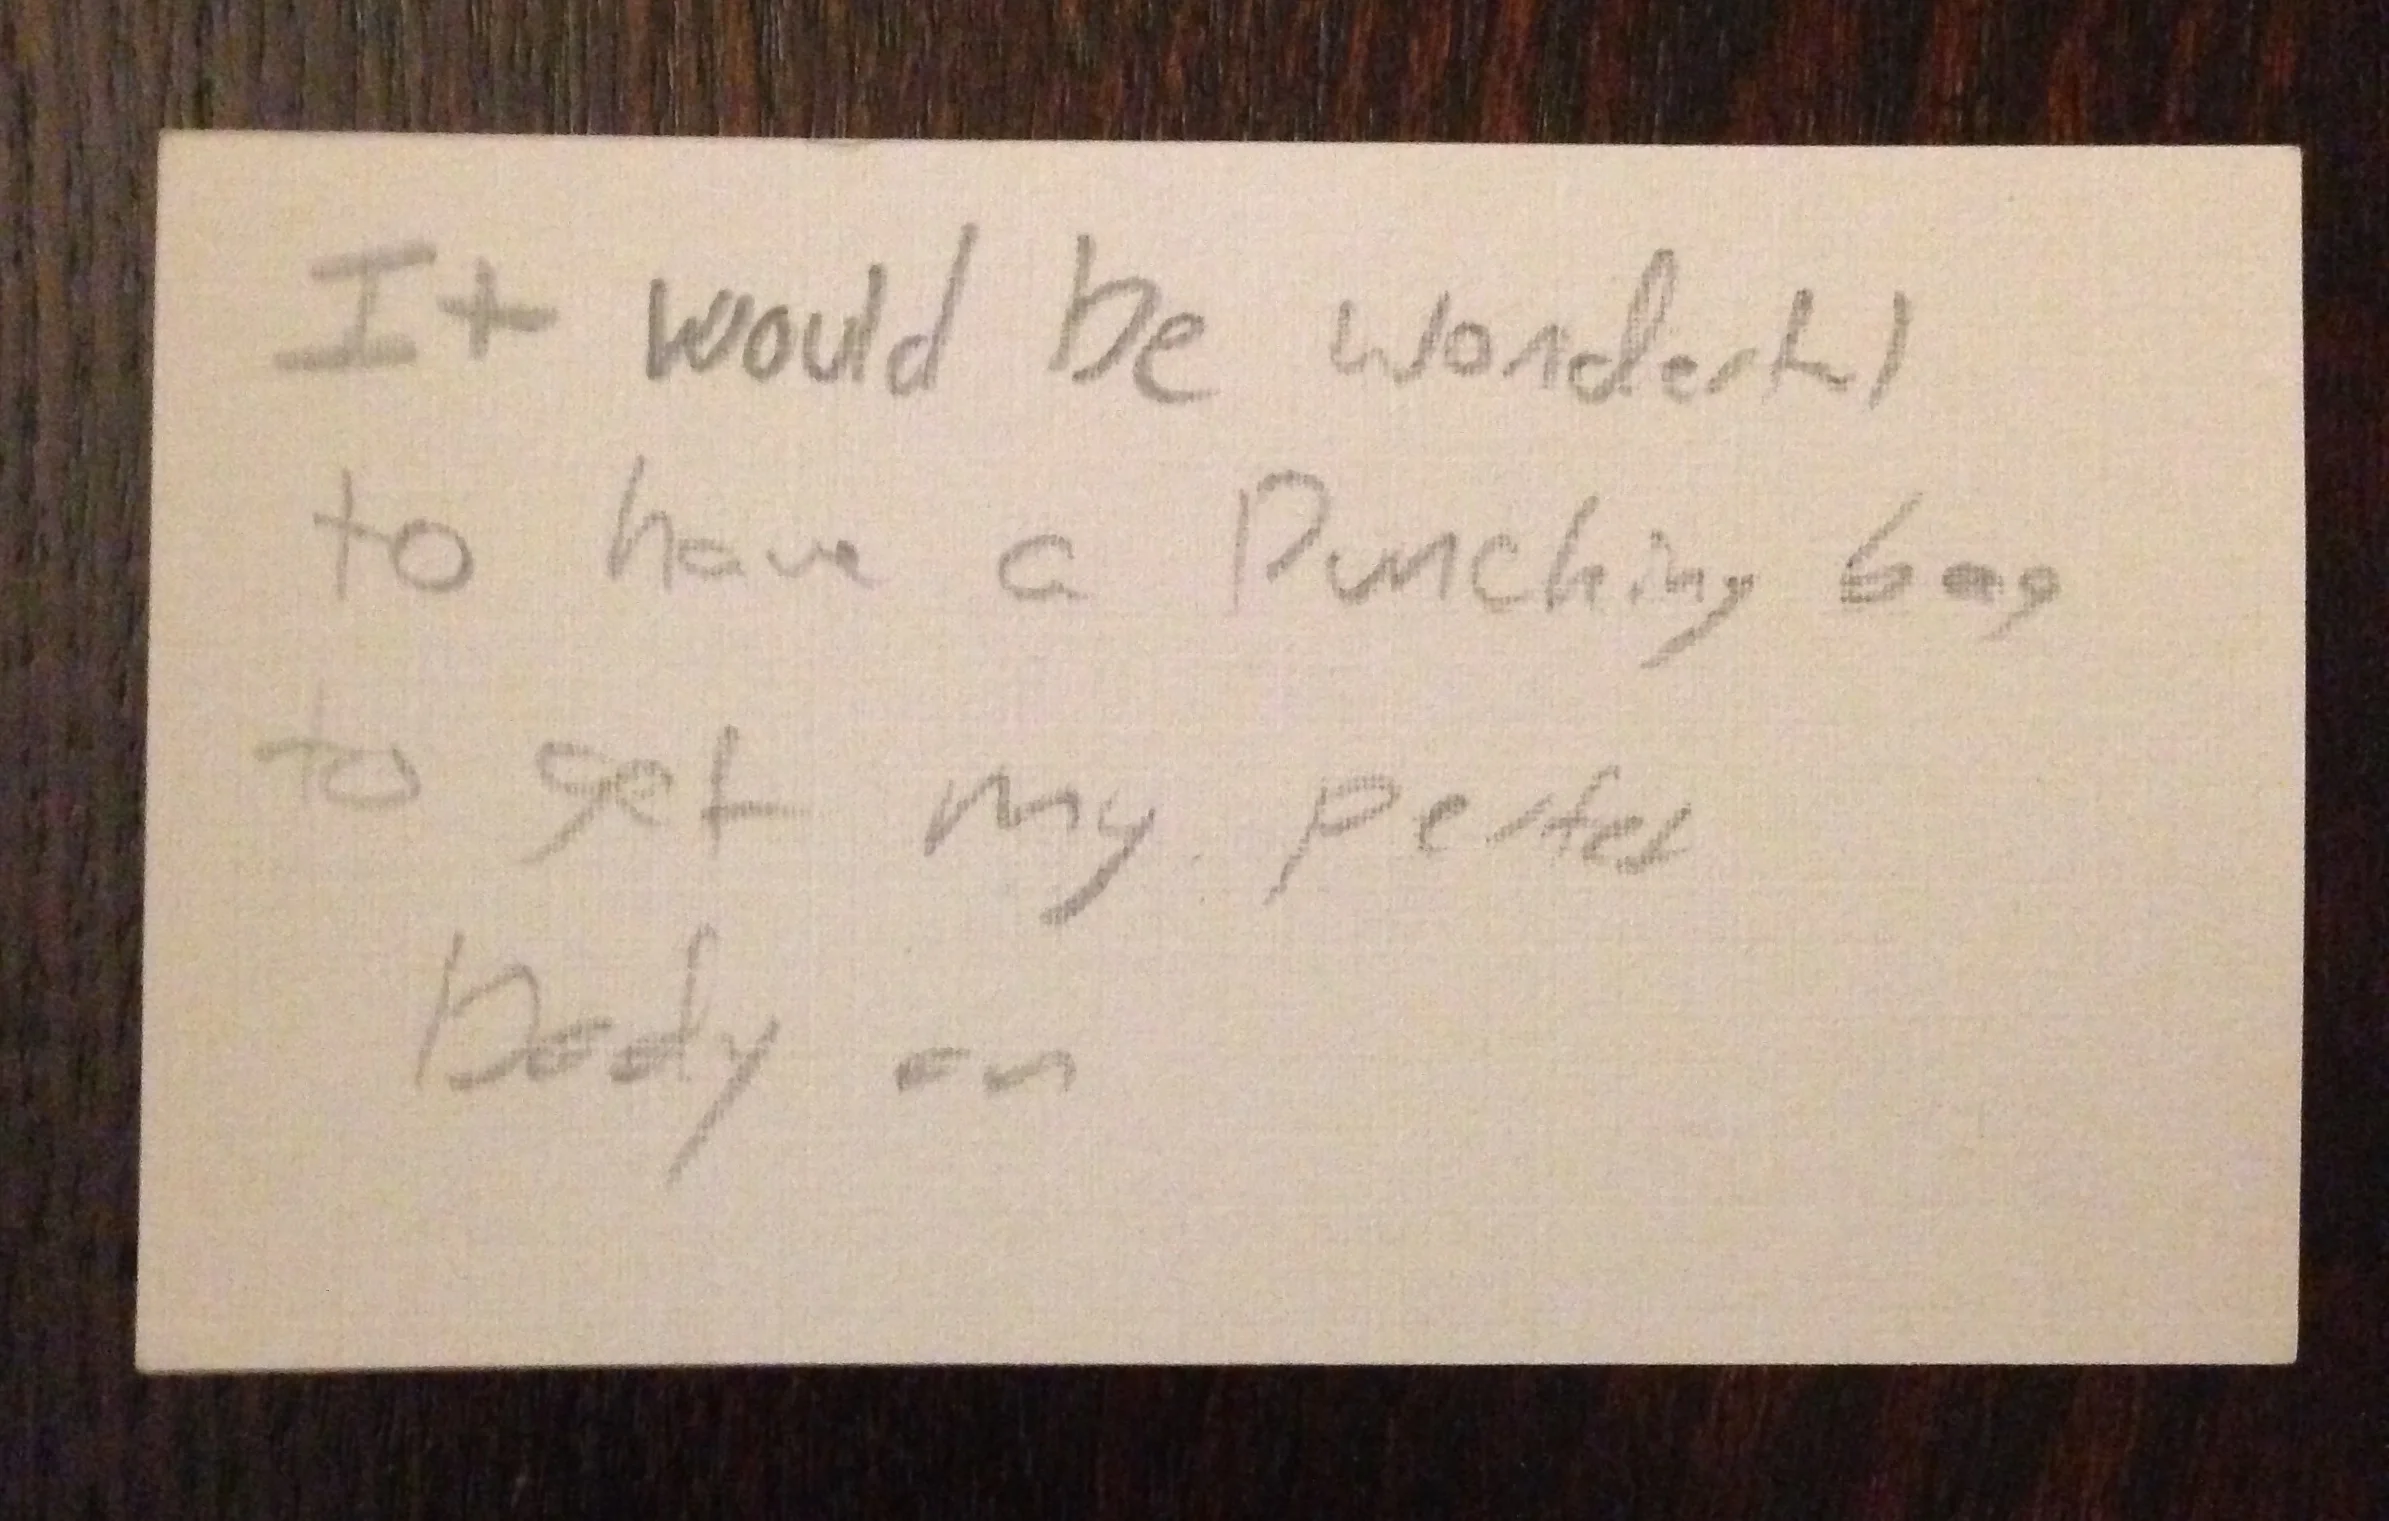 It would be wonderful
to have a Punching bag
to get my perfect
body on